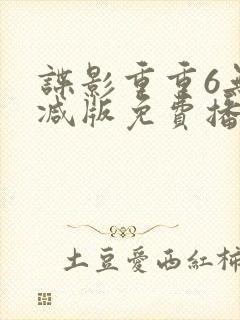 諜影重重6
減版免費播
土豆愛西紅柿